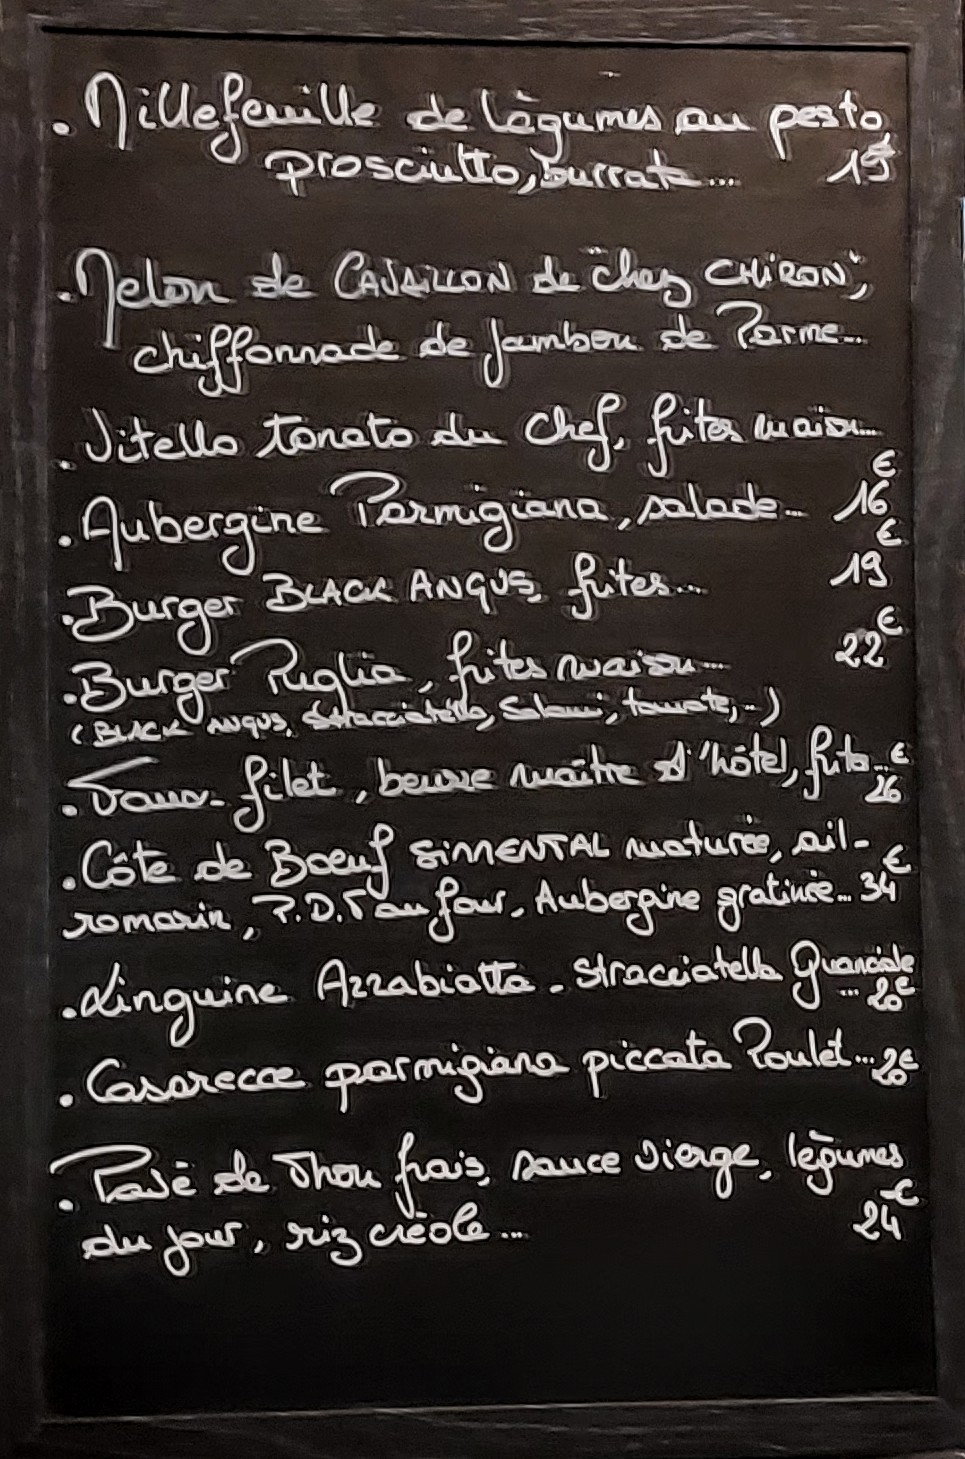 . Millefeuille de légumes au pesto,
prosciutto, burrata... 19€
. Melon de CAVAILLON de "chez CHIRON",
chiffonnade de jambon de Parme...
. Vitello tonato du Chef, frites maison...
. Aubergine Parmigiana, salade... 16€
. Burger BLACK ANGUS, frites... 19€
. Burger Puglia, frites maison... 22€
(BLACK ANGUS, Stracciatella, Salami, tomate,..)
. Faux-filet, beurre maître d'hôtel, frites...€
26
. Côte de Boeuf SIMENTAL maturée, ail-
romarin, P.D.T au four, Aubergine gratinée... 34€
. Linguine Arrabiatta, stracciatella Guanciale
... 20€
. Casarecce parmigiana piccata Poulet... 20€
. Pavé de Thon frais, sauce vierge, légumes
du jour, riz créole... 24€